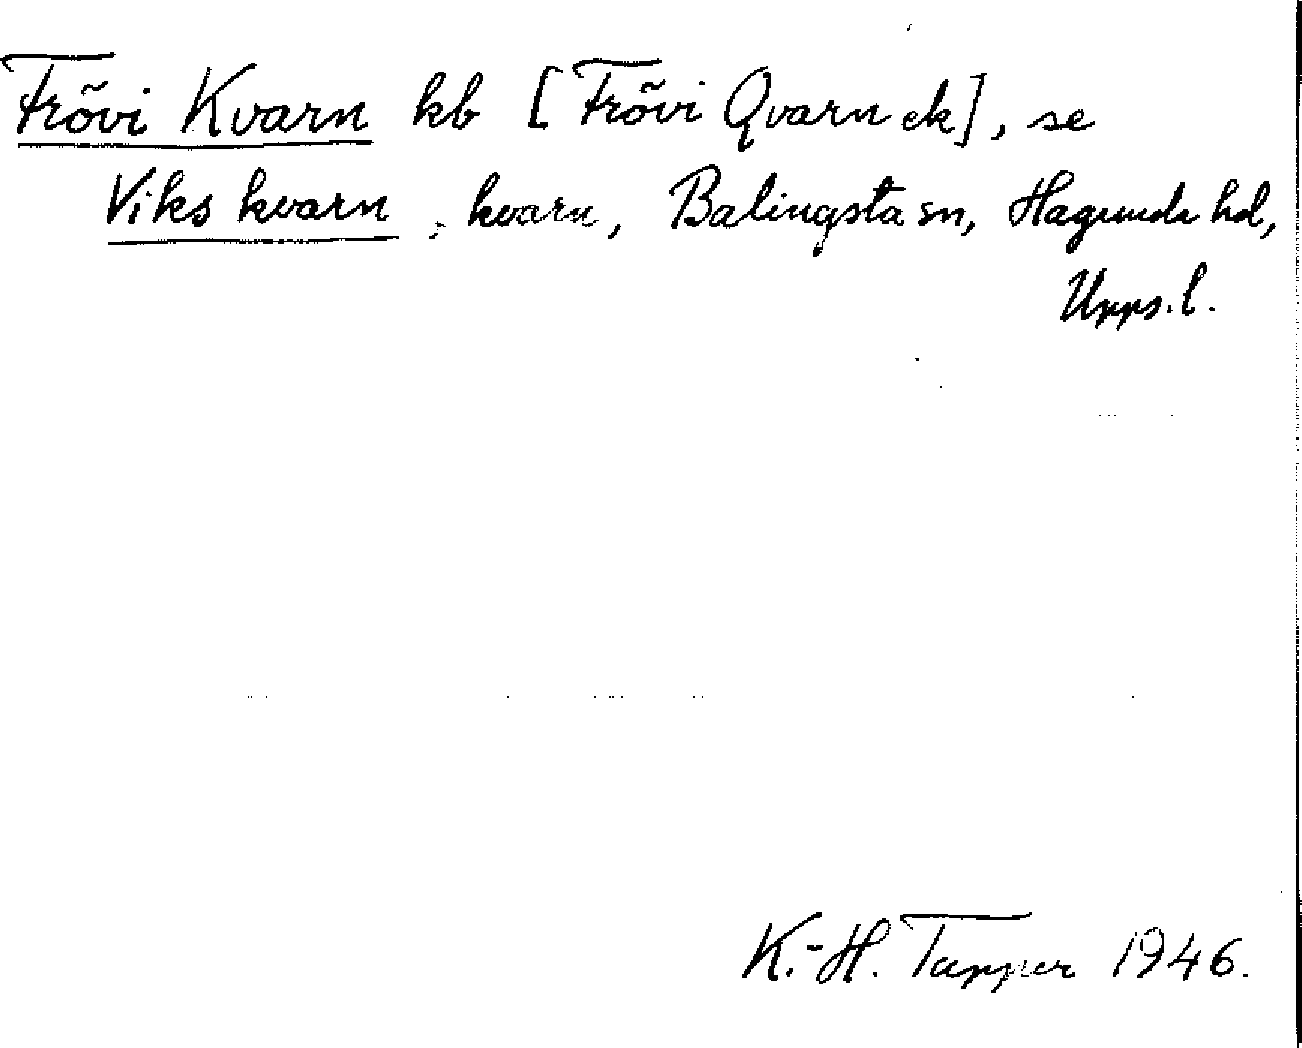 Frövi Kvarn kb [Frövi Qvarn ek], se
Viks kvarn, kvarn, Balingsta sn, Hagunda hd,
Upps. l.
K.-H. Tapper 1946.